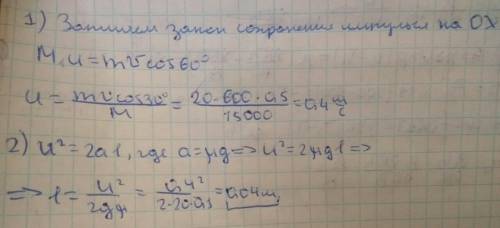 1) Запишем закон сохранения импульса на OX
M u = m v cos 60°
u = mv cos 30° / M = 20 · 600 · 0,5 / 15000 = 0,4 м/с
2) u² = 2al, где a = μg => u² = 2μgl =>
=> l = u² / 2gμ = 0,4² / 2·20·0,5 = 0,04 м